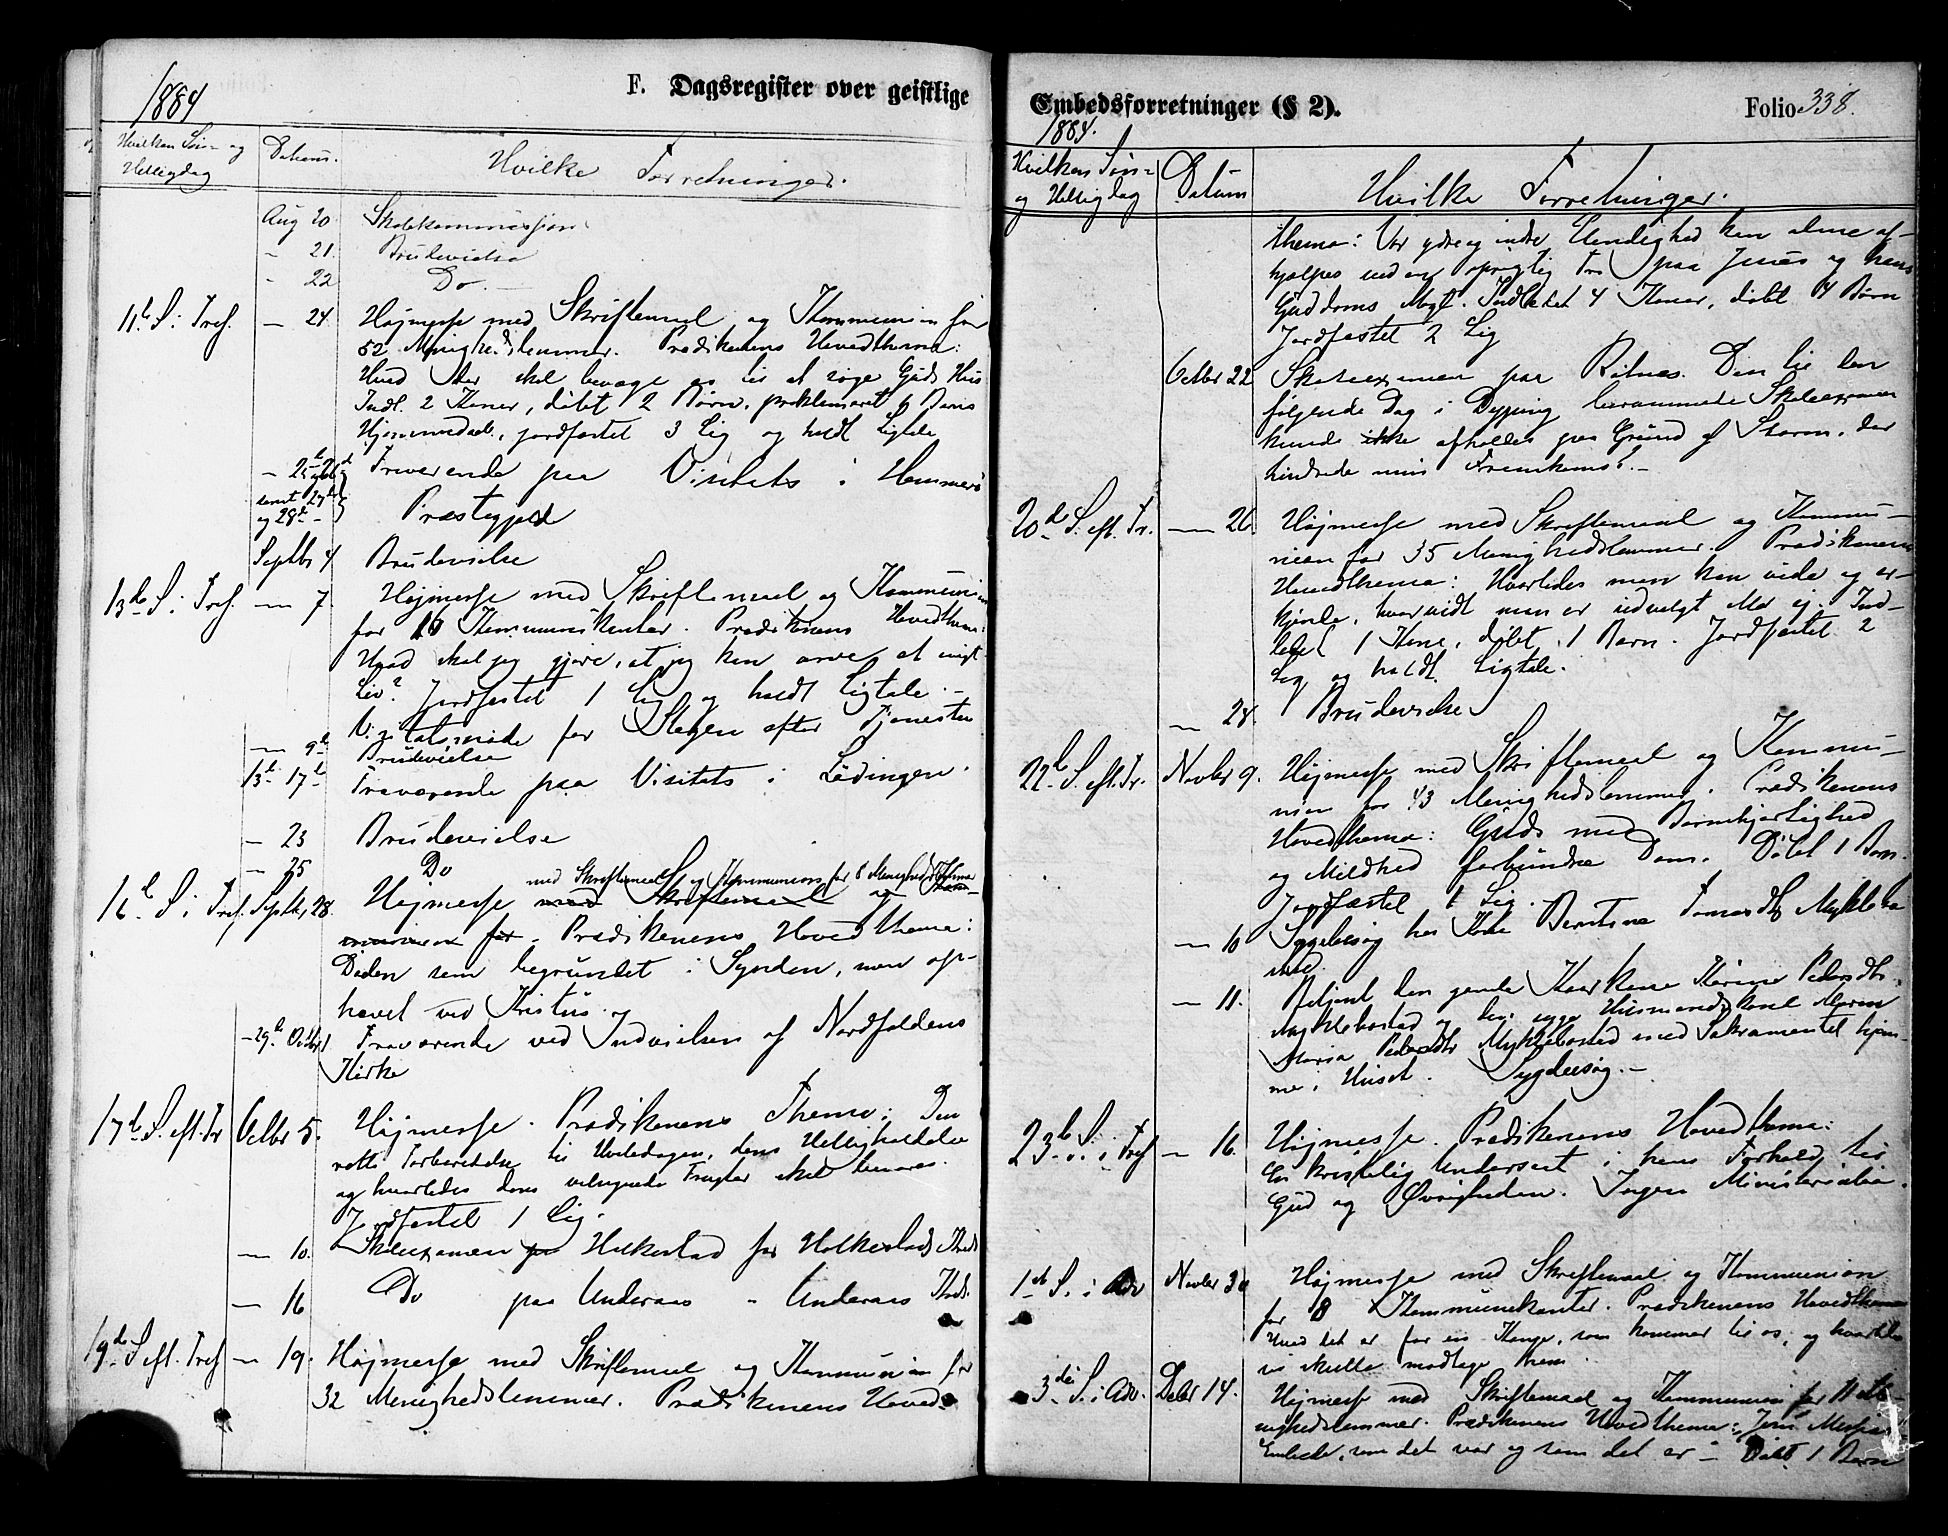 1884
F. Dagsregister over geistlige
Hvilken Søn- og
Helligdag
Datum.
Hvilke Forretninger.
Aug 20. Skolekommission.
- 21. Brudevielse
- 22 Do. -
11te S. i Tref. - 24. Højmesse med Skriftemaal og Kommunion for
52 Menighedslemmer. Prædikenens Hovedthema:
Hvad der skal bevæge os til at søge Guds Hus
Indl. 2 Koner, døbt 2 Børn, proklameret 6 Børns
Hjemmedaab, jordfæstet 3 Lig og holdt Ligtale
samt 27de
og 28de - Fraværende paa Visitats i Hammerø
Præstegjeld
Septbr 4 Brudevielse
13de S. i Tref. - 7. Højmesse med Skriftemaal og Kommunion
for 16 Kommunikanter. Prædikenens Hovedthema:
Hvad skal jeg gjøre, at jeg kan arve et evigt
Liv? Jordfæstet 1 Lig og holdt Ligtale. -
Visitatsmøde for Steigen efter Tjenesten
- 9de Brudevielse
13de - 17de Fraværende paa Visitats i Lødingen.
- 23 Brudevielse
- 25 Do
med Skriftemaal og Kommunion for 8 Menighedslemmer
16de S. i Tref. Septbr, 28. Højmesse med Skriftemaal og Kom-
munion for. Prædikenens Hovedthema:
Døden som begrundet i Synden, men op-
hævet ved Kristus.
- 29de Octbr 1 Fraværende ved Indvielsen af Nordfoldens
Kirke
17de S. eft. Tr Octbr 5. Højmesse. Prædikenens Thema: Den
rette Forberedelse til Hviledagen, dens Helligholdelse
og hvorledes dens velsignede Frugter skal bevares.
Jordfæstet 1 Lig.
- 10. Skoleexamen paa Holkestad for Holkestads Kreds
- 16 Do paa Underaas - Underaas Kreds.
19de S. eft. Tref - 19. Højmesse med Skriftemaal og Kommunion for
32 Menighedslemmer. Prædikenens Hoved-
Embedsforretninger (§ 2).
Folio 338.
1884.
Hvilken Søn-
og Helligdag
Datum
Hvilke Forretninger.
thema: Vor ydre og indre Elendighed kan alene af-
hjælpes ved en oprigtig Tro paa Jesus og hans
Guddoms Magt. Indledet 4 Koner, døbt 4 Børn
Jordfæstet 2 Lig
Octbr 22 Skoleexamen paa Bitnes. Den til den
følgende Dag i Dyping berammede Skoleexamen
kunde ikke afholdes paa Grund af Storm, der
hindrede min Fremkomst. -
20de S. eft. Tr. - 26. Højmesse med Skriftemaal og Kommu-
nion for 35 Menighedslemmer. Prædikenens
Hovedthema: Hvorledes man kan vide og er-
kjende, hvorvidt man er udvalgt eller ej. Ind-
ledet 1 Kone, døbt 1 Barn. Jordfæstet 2
Lig og holdt Ligtale.
- 28. Brudevielse
22de S. eft. Tr. Novbr 9. Højmesse med Skriftemaal og Kommu-
nion for 43 Menighedslemmer. Prædikenens
Hovedthema: Guds med Barmhjertighed
og Mildhed forbundne Dom. Døbt 1 Barn.
Jordfæstet 1 Lig.
- 10 Sygebesøg hos Bentine Tomasdtr Myklebo
stad.
- 11. Betjent den gamle Kone Karine Pedersdtr.
Myklebostad og den syge Husmandskone Maren
Maria Pedersdtr Myklebostad med Sakramentet hjem-
me i Huset. Sygebesøg. -
23de S. i Tref - 16. Højmesse. Prædikenens Hovedthema:
En kristelig Undersaat i hans Forhold til
Gud og Øvrigheden. Ingen Ministerialia.
1ste S. i Adv Novbr 30 Højmesse med Skriftemaal og Kommunion
for 8 Kommunikanter. Prædikenens Hovedthema
Hvad det er for en Konge, som kommer til os, og hvorledes
vi skulle modtage ham.
3die S. i Adv. Decbr 14. Højmesse med Skriftemaal og Kommunion for 11 Me-
nighedslemmer. Prædikenens Hovedthema: Jesu Messias
Embede, som det var og som det er - Døbt 1 Barn